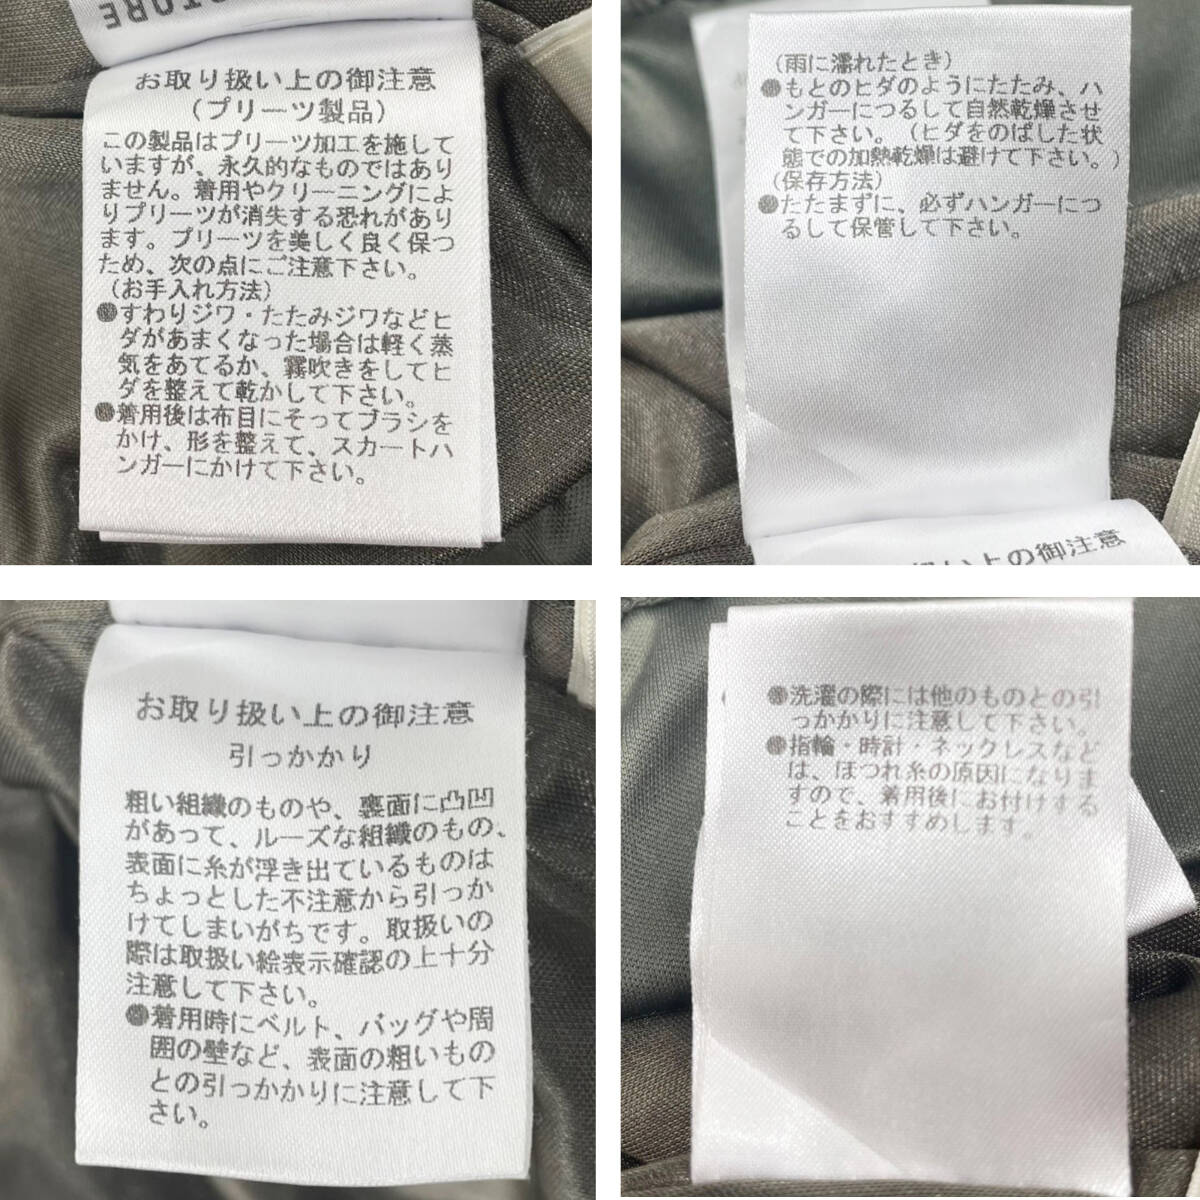 STORE
お取り扱い上の御注意
(プリーツ製品)
この製品はプリーツ加工を施して
いますが、永久的なものではあり
ません。着用やクリーニングによ
りプリーツが消失する恐れがあり
ます。プリーツを美しく良く保つ
ため、次の点にご注意下さい。
(お手入れ方法)
●すわりジワ・たたみジワなどヒ
ダがあまくなった場合は軽く蒸
気をあてるか、霧吹きをしてヒ
ダを整えて乾かして下さい。
●着用後は布目にそってブラシを
かけ、形を整えて、スカートハ
ンガーにかけて下さい。
(雨に濡れたとき)
●もとのヒダのようにたたみ、ハ
ンガーにつるして自然乾燥させ
て下さい。(ヒダをのばした状
態での加熱乾燥は避けて下さい。)
(保存方法)
●たたまずに、必ずハンガーにつ
るして保管して下さい。
扱い上の御注意
お取り扱い上の御注意
引っかかり
粗い組織のものや、裏面に凸凹
があって、ルーズな組織のもの、
表面に糸が浮き出ているものは
ちょっとした不注意から引っか
けてしまいがちです。取扱いの
際は取扱い絵表示確認の上十分
注意して下さい。
●着用時にベルト、バッグや周
囲の壁など、表面の粗いもの
との引っかかりに注意して下
さい。
●洗濯の際には他のものとの引
っかかりに注意して下さい。
●指輪・時計・ネックレスなど
は、ほつれ糸の原因になりま
すので、着用後にお付けする
ことをおすすめします。